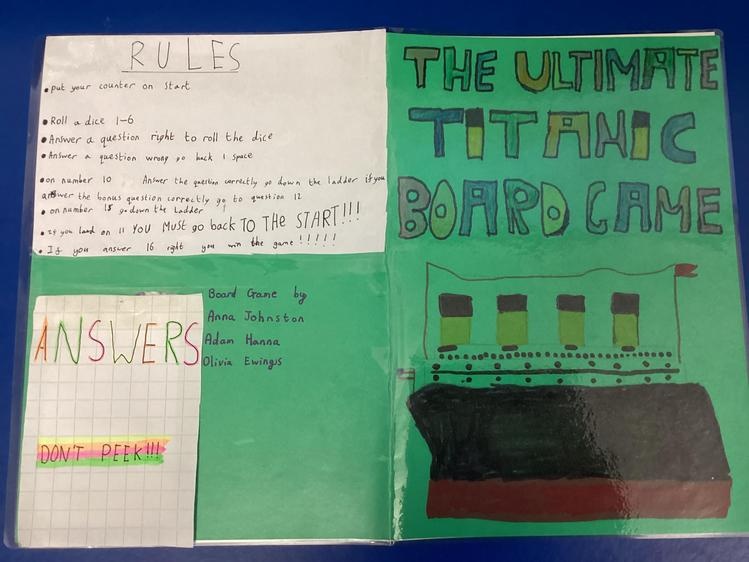 RULES
• put your counter on start
• Roll a dice 1-6
• Answer a question right to roll the dice
• Answer a question wrong go back 1 space
• on number 10 Answer the question correctly go down the ladder if you
answer the bonus question correctly go to question 12
• on number 15 go down the ladder
• If you land on 11 YOU MUST go back TO THE START!!!
• If you answer 16 right you win the game !!!!!
ANSWERS
DON'T PEEK!!!
Board Game by
Anna Johnston
Adam Hanna
Olivia Ewings
THE ULTIMATE
TITANIC
BOARD GAME